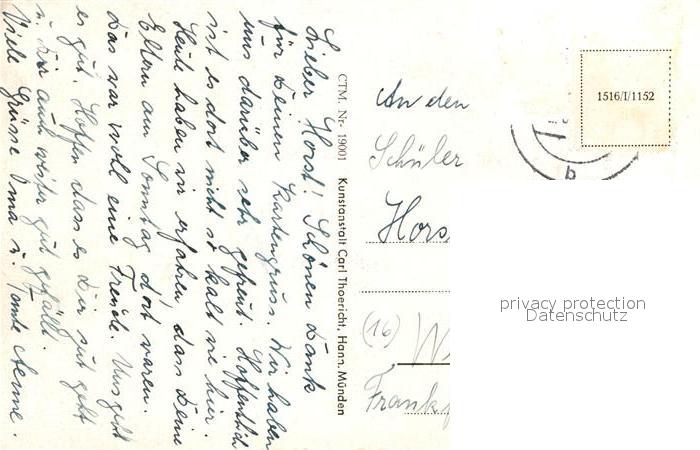 Lieber Horst! Schönen Dank
für Deinen Kartengruss. Wir haben
uns darüber sehr gefreut. Hoffentlich
ist es dort nicht so kalt wie hier.
Heute haben wir erfahren, dass Deine
Eltern am Sonntag dort waren.
Das war wohl eine Freude. Uns geht
es gut. Hoffen dass es Dir gut geht
u. Dir auch weiter gut gefällt.
Viele Grüsse Oma u. Tante Aenne.
CTM. Nr. 19001 Kunstanstalt Carl Thoericht, Hann. Münden
An den
Schüler
Hors
(16) W
Frankf
1516/I/1152
b
privacy protection
Datenschutz